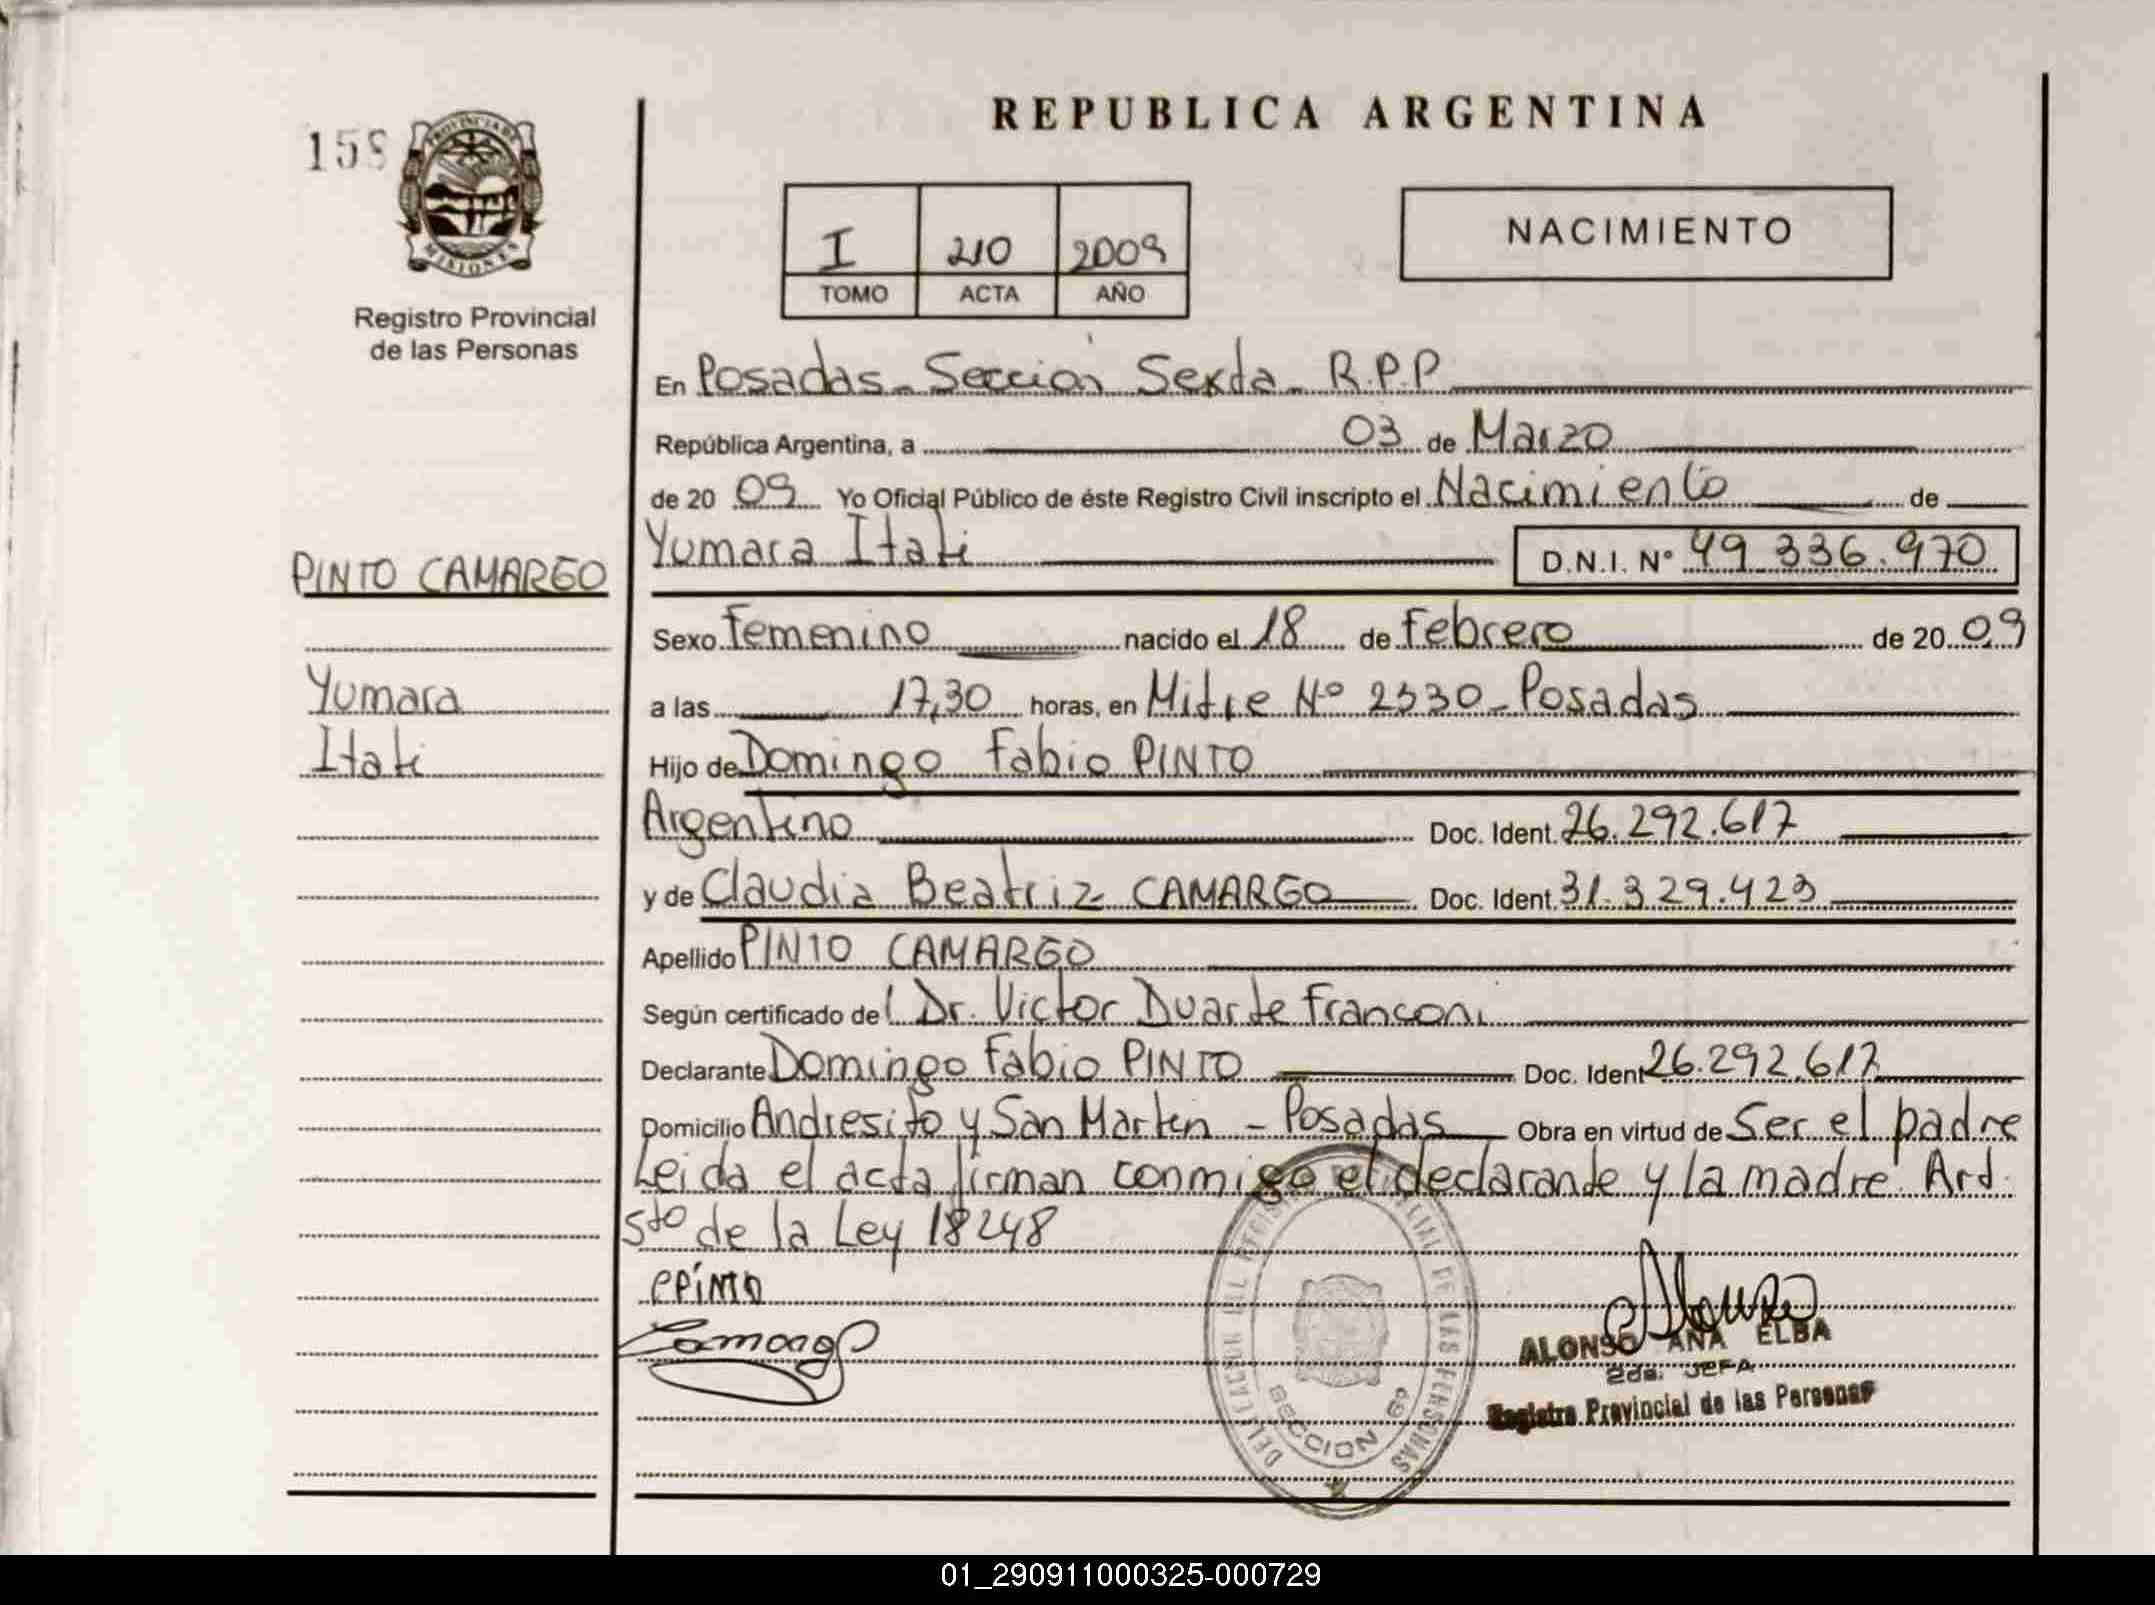 REPUBLICA ARGENTINA
PROVINCIA DE
MISIONES
Registro Provincial
de las Personas
I 210 2009
TOMO ACTA AÑO
NACIMIENTO
En Posadas - Sección Sexta - R.P.P
República Argentina, a 03 de Marzo
de 20 09 Yo Oficial Público de éste Registro Civil inscripto el Nacimiento de
Yumara Itati D.N.I. N° 49.336.970
PINTO CAMARGO
Yumara
Itati
Sexo Femenino nacido el 18 de Febrero de 20 09
a las 17,30 horas, en Mitre N° 2330 - Posadas
Hijo de Domingo Fabio PINTO
Argentino Doc. Ident. 26.292.617
y de Claudia Beatriz CAMARGO Doc. Ident. 31.329.423
Apellido PINTO CAMARGO
Según certificado del Dr. Victor Duarte Franconi
Declarante Domingo Fabio PINTO Doc. Ident 26.292.617
Domicilio Andresito y San Martin - Posadas Obra en virtud de Ser el padre
Leida el acta firman conmigo el declarante y la madre Art.
5to de la Ley 18248
PINTO
Camargo
DELEGACION DEL REGISTRO PROVINCIAL DE LAS PERSONAS
SECCION 6ª
ALONSO ANA ELBA
2da. JEFA
Registro Provincial de las Personas
01_290911000325-000729